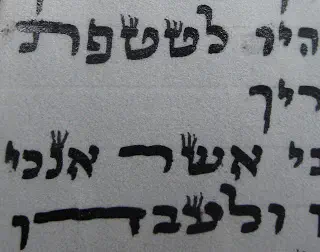 היו לטטפת
ריך
תי אשר אנכי
ולעבדו